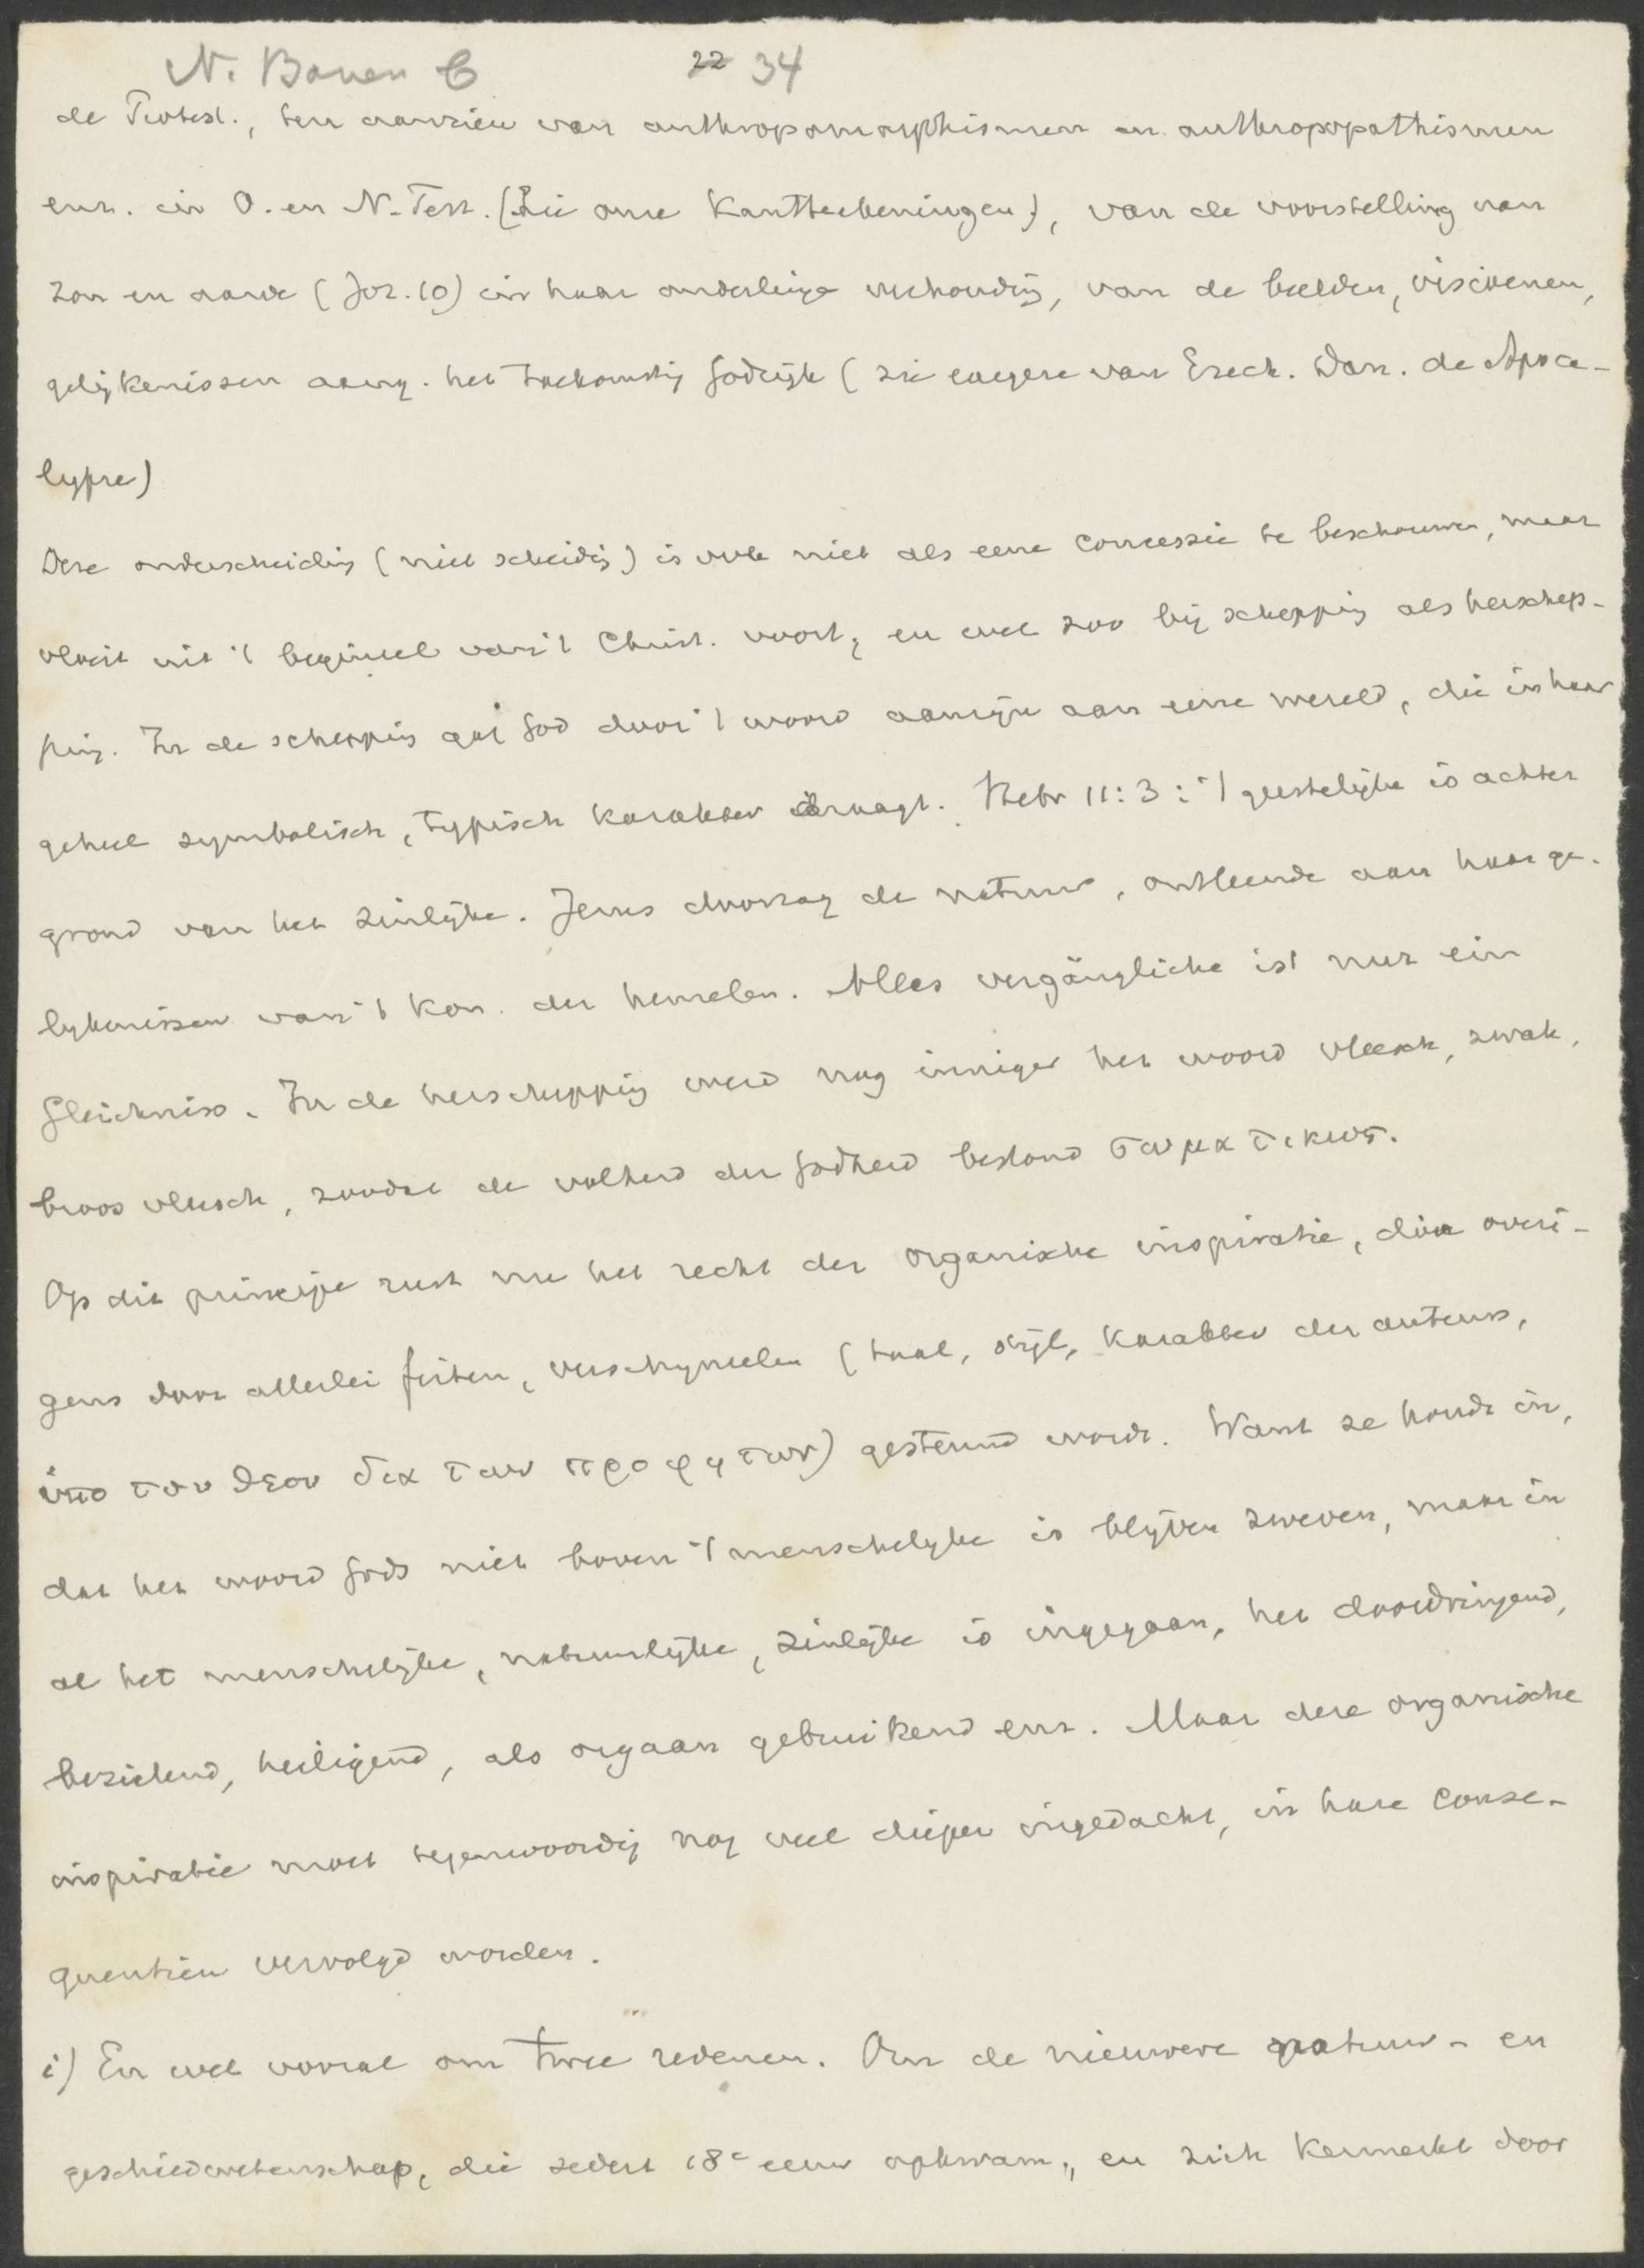 N. Boven C 22 34
de Protest., ten aanzien van anthropomorphismen en anthropopathismen
enz. in O. en N. Test. (Zie onze Kantteekeningen), van de voorstelling van
zon en aarde (Joz. 10) in haar onderlinge verhoudig, van de beelden, visioenen,
gelijkenissen aang. het toekomstig Godrijk (zie exegese van Ezech. Dan. de Apoca-
lypse)
Deze onderscheidig (niet scheidig) is ook niet als eene concessie te beschouwen, maar
vloeit uit 't beginsel van 't Christ. voort, en wel zoo bij schepping als herschep-
ping. In de schepping gaf God door 't woord aanzijn aan eene wereld, die in haar
geheel symbolisch, typisch karakter draagt. Hebr 11:3: 't geestelijke is achter
grond van het zinlijke. Jezus doorzag de natuur, ontleende aan haar ge-
lykenissen van 't Kon. der hemelen. Alles vergängliche ist nur ein
Gleichniss. In de herschepping werd nog inniger het woord vleesch, zwak,
broos vleesch, zoodat de volheid der Godheid bestond σωματικως.
Op dit principe rust nu het recht der organische inspiratie, die overi-
gens door allerlei feiten, verschynselen (taal, stijl, karakter der auteurs,
ὑπο του θεου δια των προφητων) gesteund wordt. Want ze houdt in,
dat het woord Gods niet boven 't menschelyke is blyven zweven, maar in
al het menschelijke, natuurlijke, zinlijke is ingegaan, het doordringend,
bezielend, heiligend, als orgaan gebruikend enz. Maar deze organische
inspiratie moet tegenwoordig nog veel dieper ingedacht, in hare conse-
quentien vervolgd worden.
i) En wel vooral om twee redenen. Om de nieuwere natuur- en
geschiedwetenschap, die sedert 18e eeuw opkwam, en zich kenmerkt door